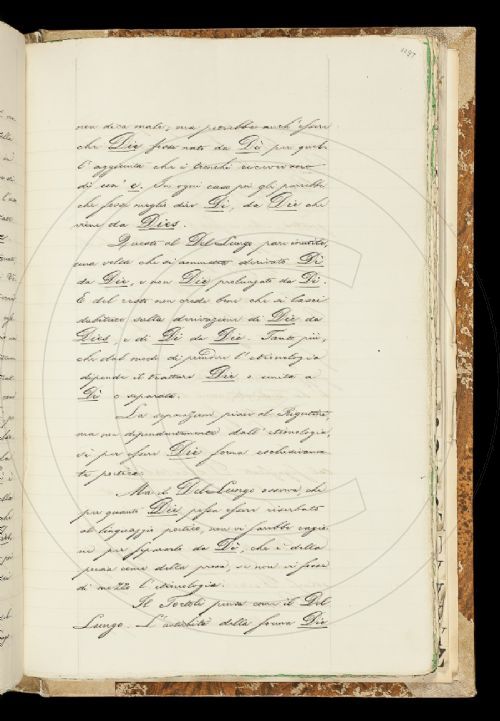 1197
non dica male, ma potrebbe anch'essere
che Die fosse nato da Dì per quell'
l'aggiunta che i
di un' e. In ogni caso poi gli parrebbe
che fosse meglio dire Dì, da Die che
vien da Dies.
Questo al Del Lungo pare inutile,
una volta che si ammette derivato Dì
da Die, e non Die prolungato da Dì.
E del resto non crede bene che si lasci
dubitare sulla derivazione di Die da
Dies e di Dì da Die. Tanto più,
che dal modo di prendere l'etimologia
dipende il trattare Die o unito a
Dì o separato.
La separazione piace al Rigutini
ma non dipendentemente dall'etimologia,
sì per essere Die forma esclusivamen
te poetica.
Ma il Del Lungo osserva, che
per quanto Die possa essere riserbato
al linguaggio poetico, non vi sarebbe ragio
ne per separarlo da Dì, che è della
poesia come della prosa, se non vi fosse
di mezzo l'etimologia.
Il Tortoli pensa come il Del
Lungo. L' della forma Die